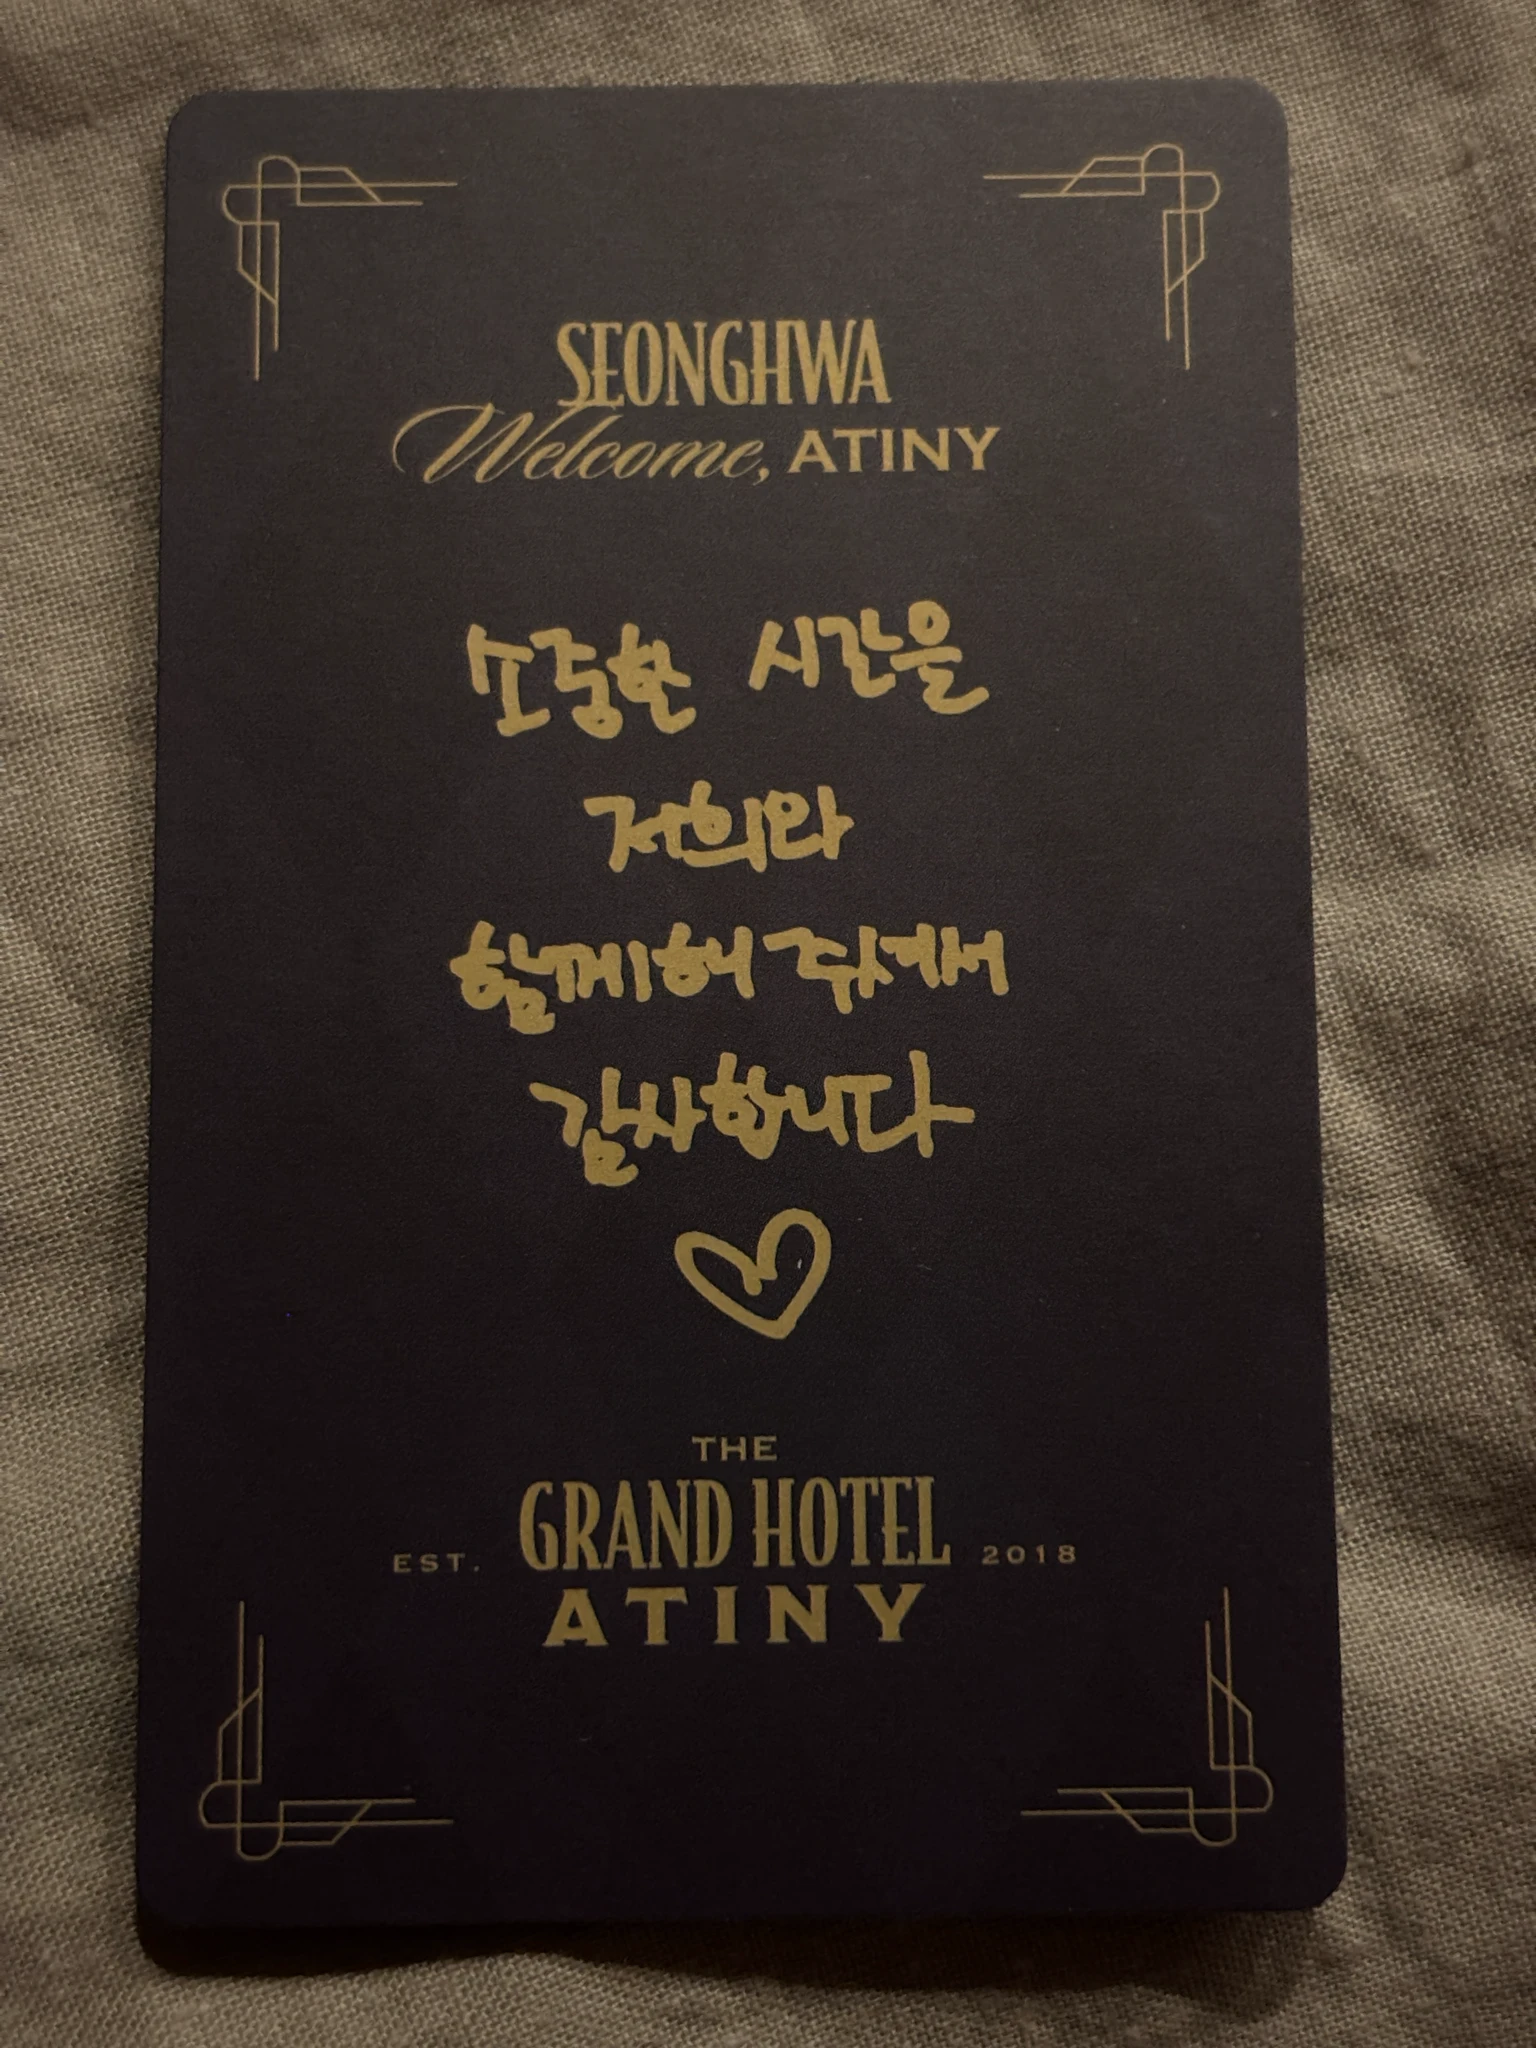 SEONGHWA
Welcome, ATINY
소중한 시간을
저희와
함께해 주셔서
감사합니다
THE
GRAND HOTEL
EST. 2018
ATINY